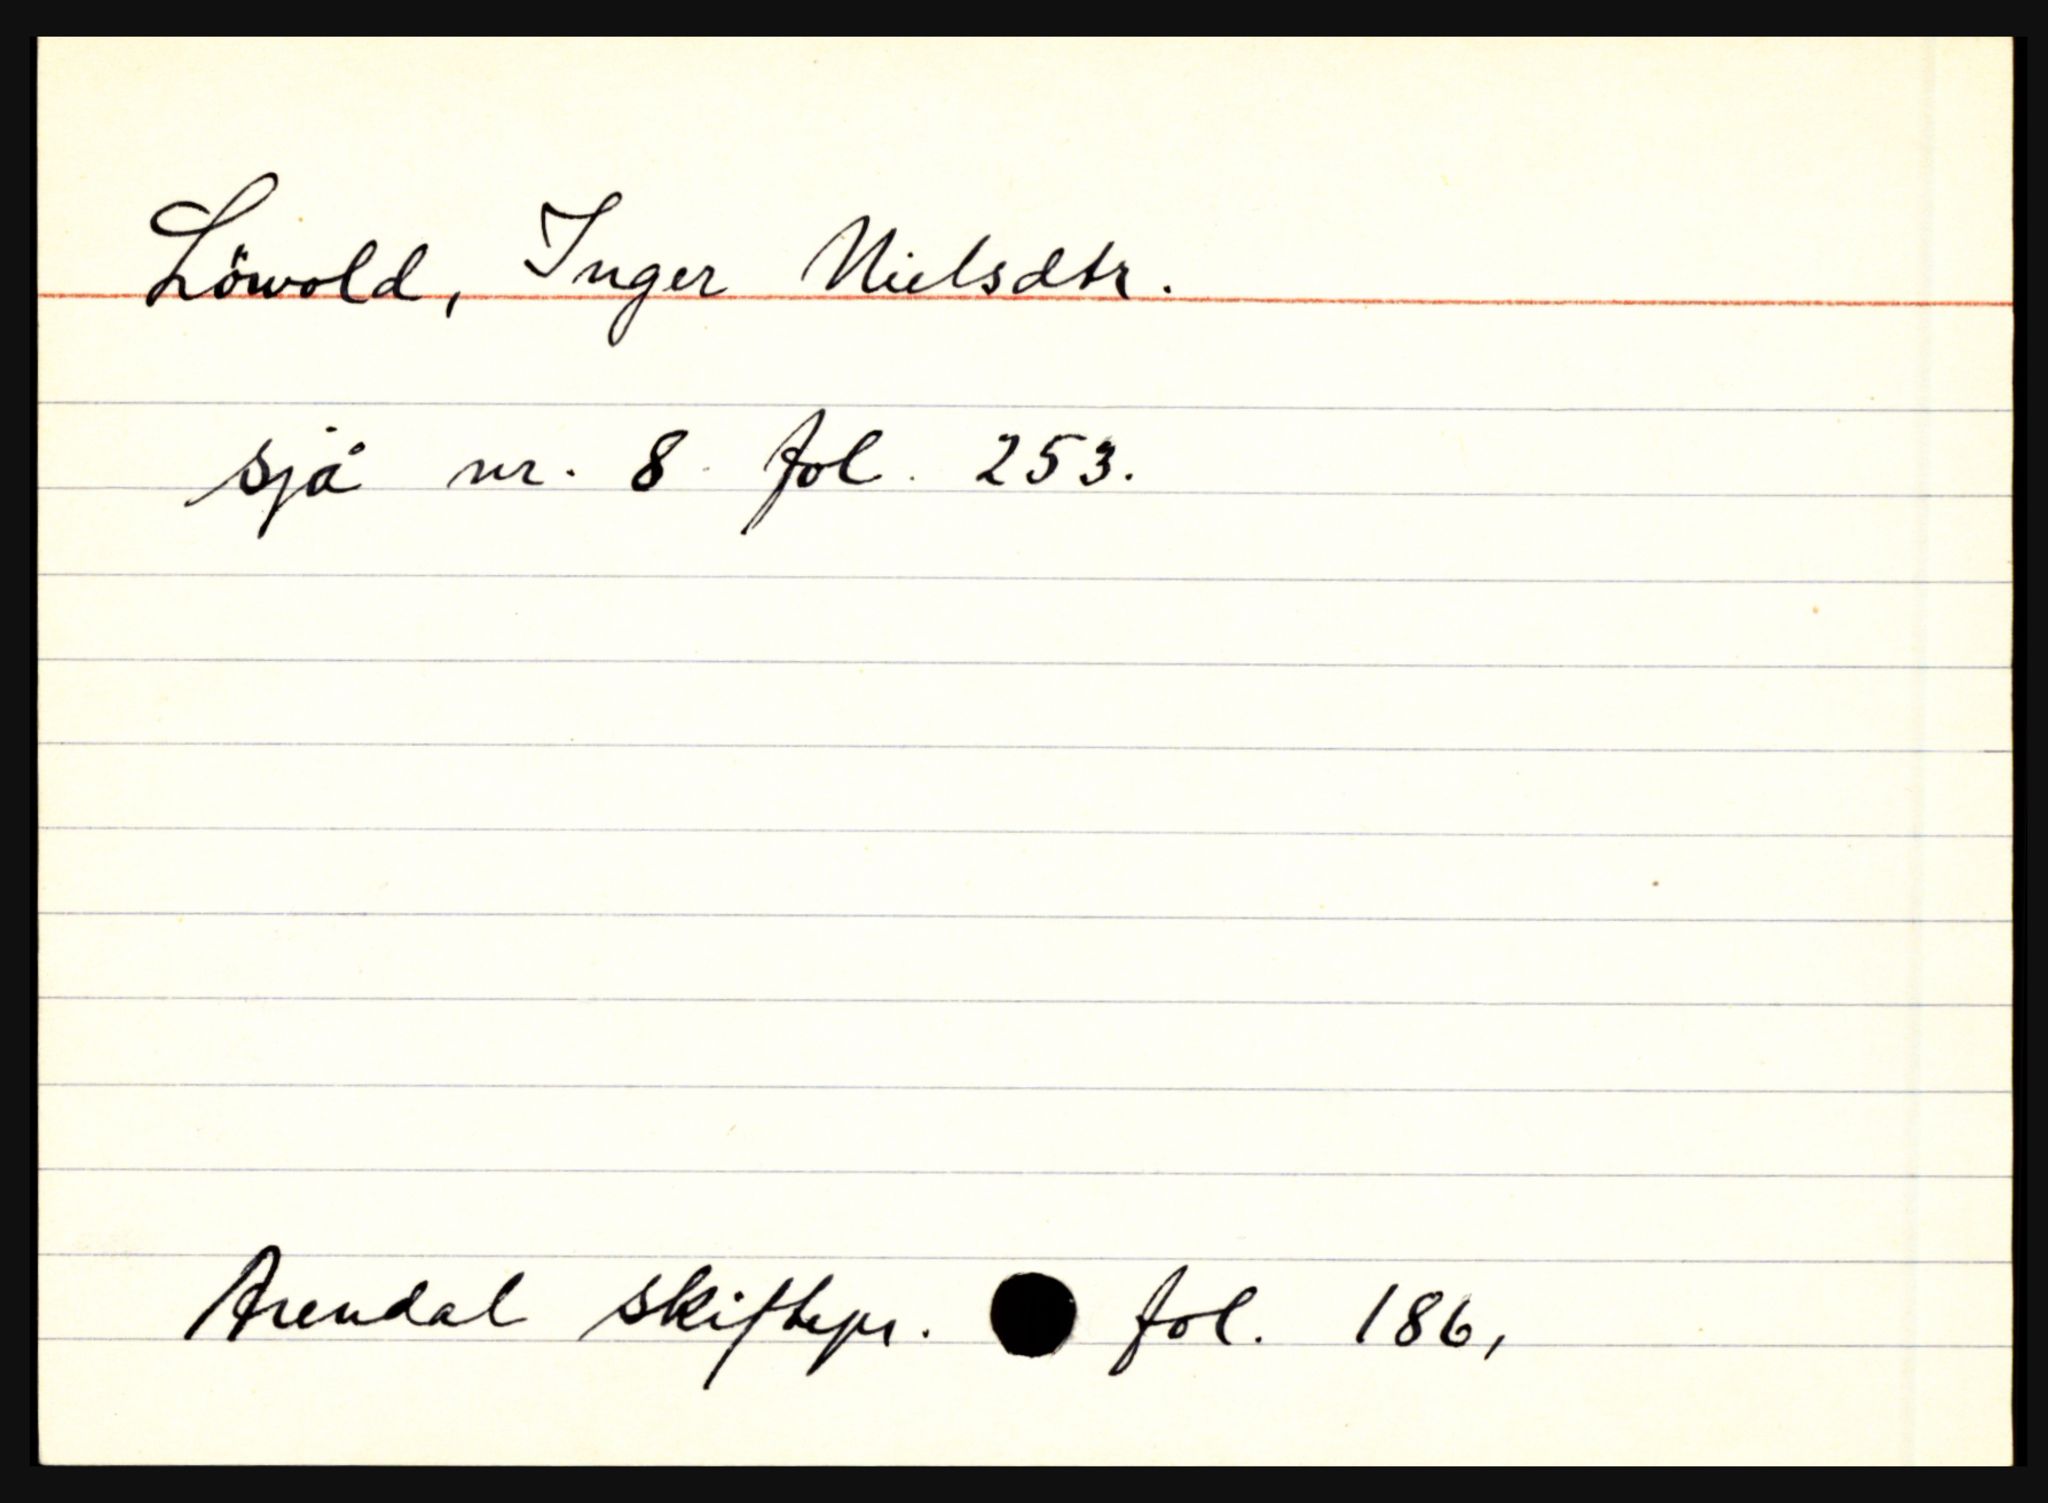 Löwold, Inger Nielsdtr.
sjå nr. 8. fol. 253.
Arendal skiftepr. fol. 186,